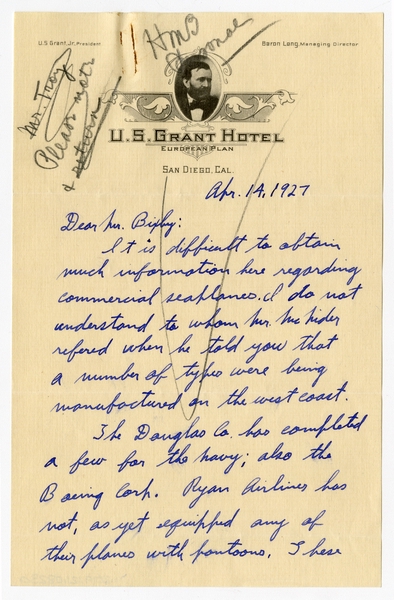 U.S. Grant, Jr. President
Baron Long, Managing Director
HMB
Personal
Mr. Troy
Please note
& return
U.S. Grant Hotel
European Plan
San Diego, Cal.
Apr. 14, 1927
Dear Mr. Bixby:
It is difficult to obtain
much information here regarding
commercial seaplanes. I do not
understand to whom Mr. McNider
refered when he told you that
a number of types were being
manufactured on the west coast.
The Douglas Co. has completed
a few for the navy; also the
Boeing Corp. Ryan Airlines has
not, as yet equipped any of
their planes with pontoons. These